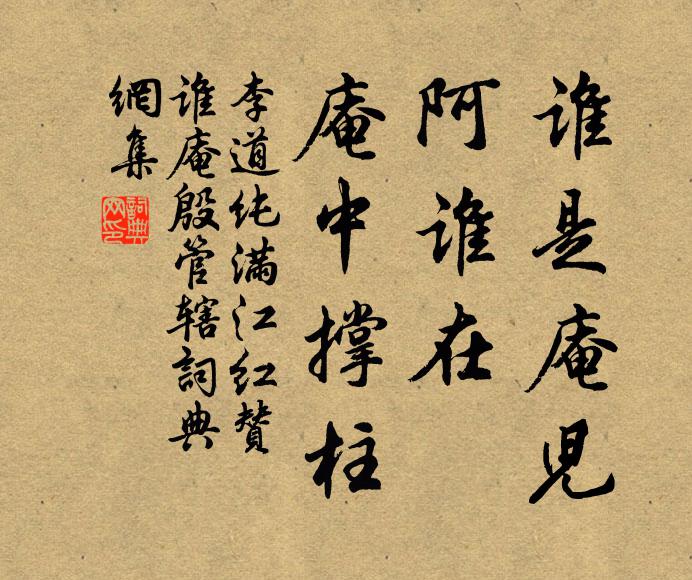 誰是庵児
阿誰在
庵中撐柱
李道純滿江紅贊
誰庵殷管轄詞典
網集
詞典網印